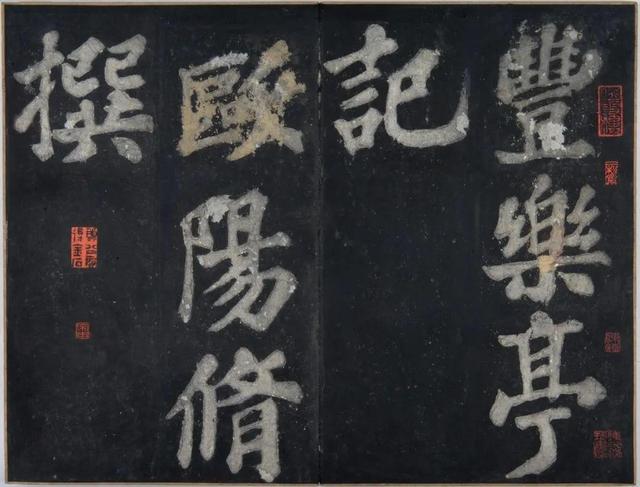 豐樂亭
記
歐陽脩
撰